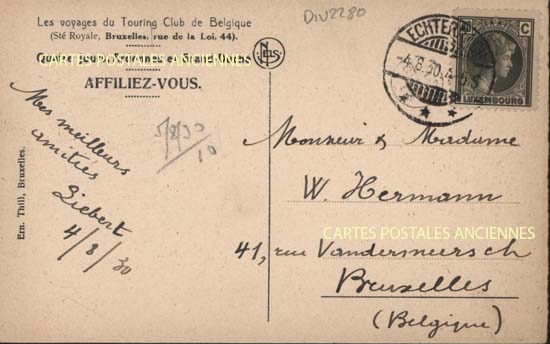 Les voyages du Touring Club de Belgique
(Sté Royale, Bruxelles, rue de la Loi, 44).
CARTES POSTALES ANCIENNES
AFFILIEZ-VOUS.
NELS
DIV2280
ECHTER
-4.8.30.4-
C
LUXEMBOURG
Mes meilleurs
amitiés
Liebert
4/8/30
5/8/30
10
Ern. Thill, Bruxelles.
Monsieur & Madame
W. Hermann
CARTES POSTALES ANCIENNES
41, rue Vandermeersch
Bruxelles
(Belgique)